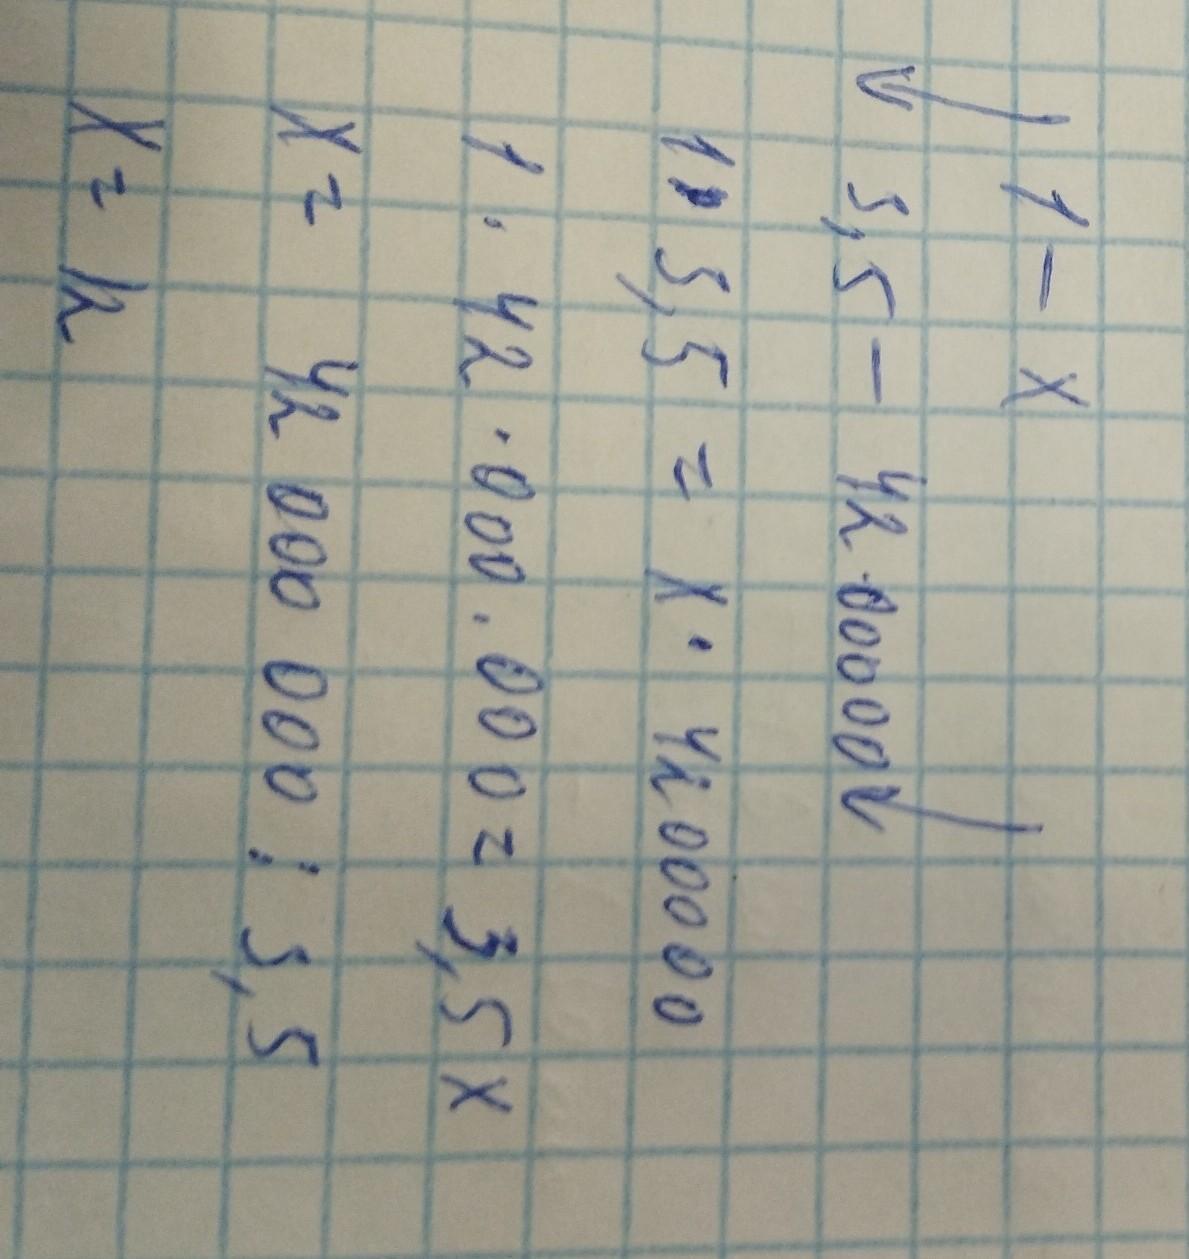 ↓ 1 - x
3,5 - 42.00000 ↓
1 · 3,5 = x · 4200000
1 · 42.000.000 = 3,5x
x = 42 000 000 : 3,5
x = 12